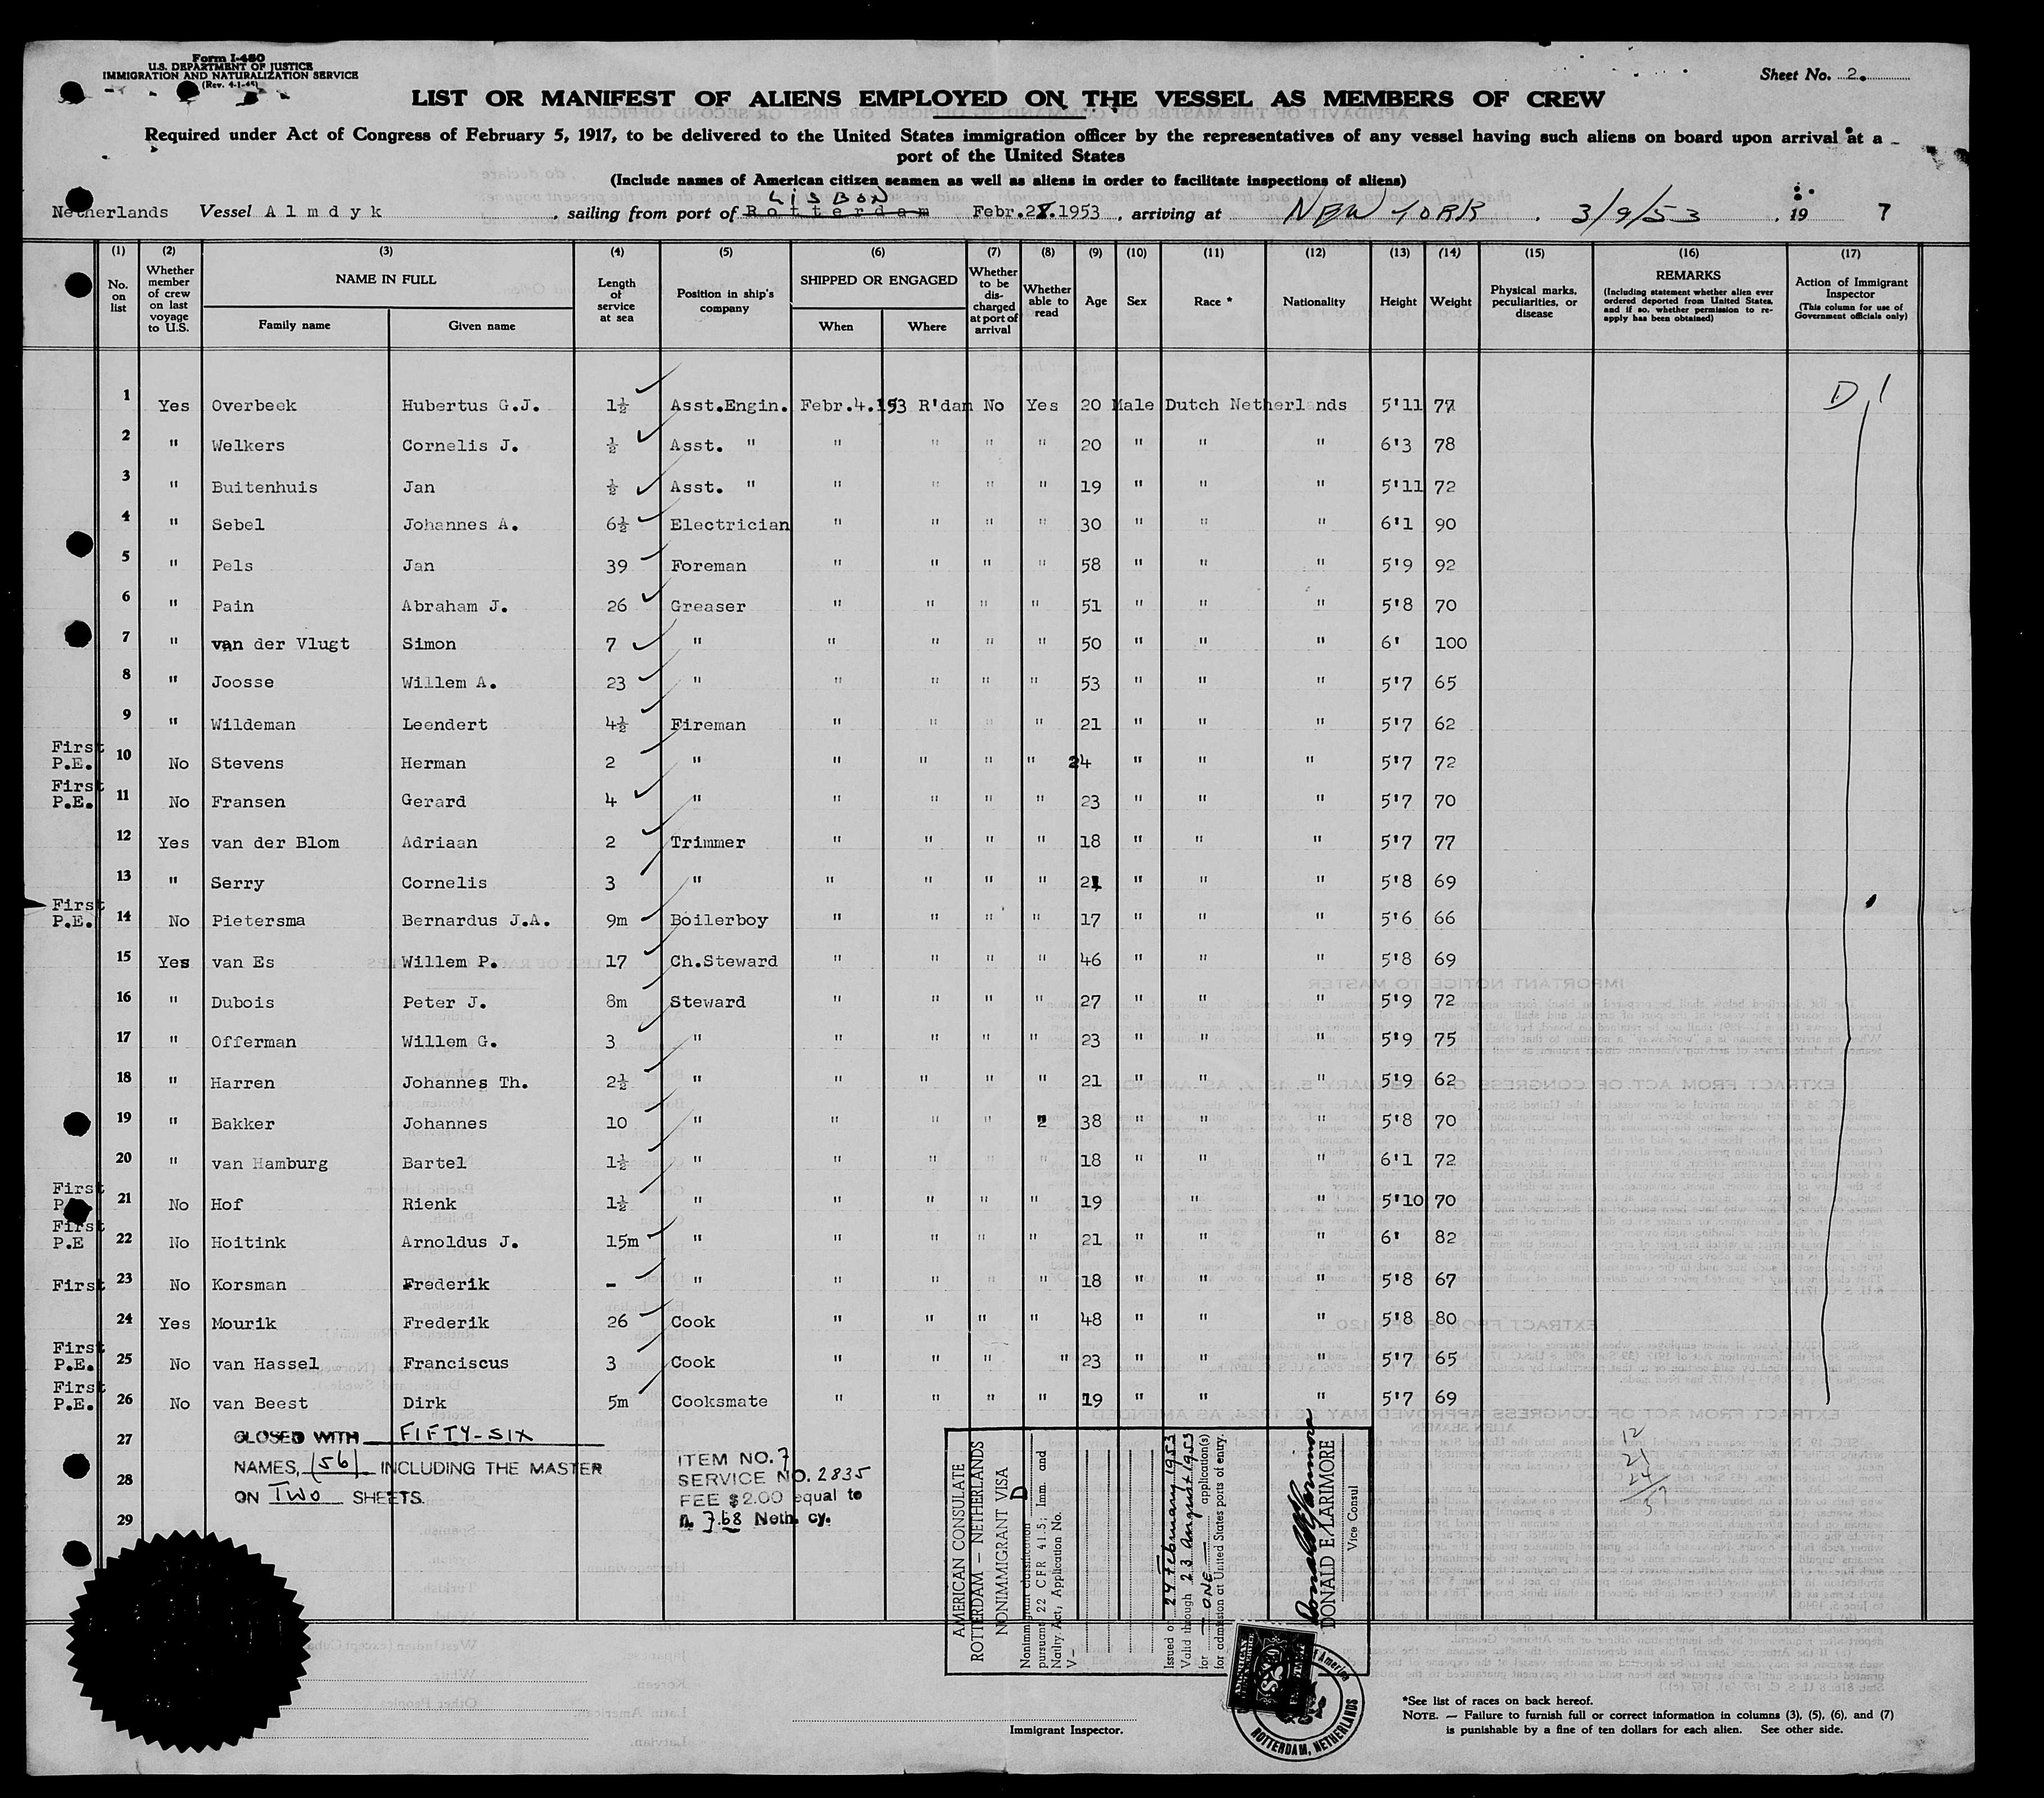 Form I-480
U.S. DEPARTMENT OF JUSTICE
IMMIGRATION AND NATURALIZATION SERVICE
(Rev. 4-1-45)
Sheet No. 2.
LIST OR MANIFEST OF ALIENS EMPLOYED ON THE VESSEL AS MEMBERS OF CREW
Required under Act of Congress of February 5, 1917, to be delivered to the United States immigration officer by the representatives of any vessel having such aliens on board upon arrival at a
port of the United States
(Include names of American citizen seamen as well as aliens in order to facilitate inspections of aliens)
LISBON
Netherlands Vessel Almdyk, sailing from port of Rotterdam Febr.28.1953, arriving at NEW YORK. 3/9/53, 19 7
(1) (2) (3) (4) (5) (6) (7) (8) (9) (10) (11) (12) (13) (14) (15) (16) (17)
No. on list
Whether member of crew on last voyage to U.S.
NAME IN FULL
Family name
Given name
Length of service at sea
Position in ship's company
SHIPPED OR ENGAGED
When
Where
Whether to be discharged at port of arrival
Whether able to read
Age
Sex
Race *
Nationality
Height
Weight
Physical marks, peculiarities, or disease
REMARKS
(Including statement whether alien ever ordered deported from United States, and if so, whether permission to re-apply has been obtained)
Action of Immigrant Inspector
(This column for use of Government officials only)
1 Yes Overbeek Hubertus G.J. 1½ Asst.Engin. Febr.4.153 R'dam No Yes 20 Male Dutch Netherlands 5'11 77 D1
2 " Welkers Cornelis J. ½ Asst. " " " " " 20 " " " 6'3 78
3 " Buitenhuis Jan ½ Asst. " " " " " 19 " " " 5'11 72
4 " Sebel Johannes A. 6½ Electrician " " " " 30 " " " 6'1 90
5 " Pels Jan 39 Foreman " " " " 58 " " " 5'9 92
6 " Pain Abraham J. 26 Greaser " " " " 51 " " " 5'8 70
7 " van der Vlugt Simon 7 " " " " " 50 " " " 6' 100
8 " Joosse Willem A. 23 " " " " " 53 " " " 5'7 65
9 " Wildeman Leendert 4½ Fireman " " " " 21 " " " 5'7 62
First P.E. 10 No Stevens Herman 2 " " " " " 24 " " " 5'7 72
First P.E. 11 No Fransen Gerard 4 " " " " " 23 " " " 5'7 70
12 Yes van der Blom Adriaan 2 Trimmer " " " " 18 " " " 5'7 77
13 " Serry Cornelis 3 " " " " " 21 " " " 5'8 69
First P.E. 14 No Pietersma Bernardus J.A. 9m Boilerboy " " " " 17 " " " 5'6 66
15 Yes van Es Willem P. 17 Ch.Steward " " " " 46 " " " 5'8 69
16 " Dubois Peter J. 8m Steward " " " " 27 " " " 5'9 72
17 " Offerman Willem G. 3 " " " " " 23 " " " 5'9 75
18 " Harren Johannes Th. 2½ " " " " " 21 " " " 5'9 62
19 " Bakker Johannes 10 " " " " " 38 " " " 5'8 70
20 " van Hamburg Bartel 1½ " " " " " 18 " " " 6'1 72
First P. 21 No Hof Rienk 1½ " " " " " 19 " " 5'10 70
First P.E 22 No Hoitink Arnoldus J. 15m " " " " " 21 " " " 6' 82
First 23 No Korsman Frederik - " " " " " 18 " " " 5'8 67
24 Yes Mourik Frederik 26 Cook " " " " 48 " " " 5'8 80
First P.E. 25 No van Hassel Franciscus 3 Cook " " " " 23 " " " 5'7 65
First P.E. 26 No van Beest Dirk 5m Cooksmate " " " " 19 " " " 5'7 69
27
28
29
CLOSED WITH FIFTY-SIX
NAMES, (56) INCLUDING THE MASTER
ON TWO SHEETS.
ITEM NO. 7
SERVICE NO. 2835
FEE $2.00 equal to
fl. 7.68 Neth. cy.
AMERICAN CONSULATE
ROTTERDAM – NETHERLANDS
NONIMMIGRANT VISA
Nonimmigrant classification D
pursuant 22 CFR 41.5; Imm. and
Natlty. Act; Application No.
V–
Issued on 24 February 1953
Valid through 23 August 1953
for ONE application(s)
for admission at United States ports of entry.
DONALD E. LARIMORE
Vice Consul
12
21
24
57
AMERICAN
ROTTERDAM, NETHERLANDS
Immigrant Inspector.
*See list of races on back hereof.
NOTE. — Failure to furnish full or correct information in columns (3), (5), (6), and (7)
is punishable by a fine of ten dollars for each alien. See other side.